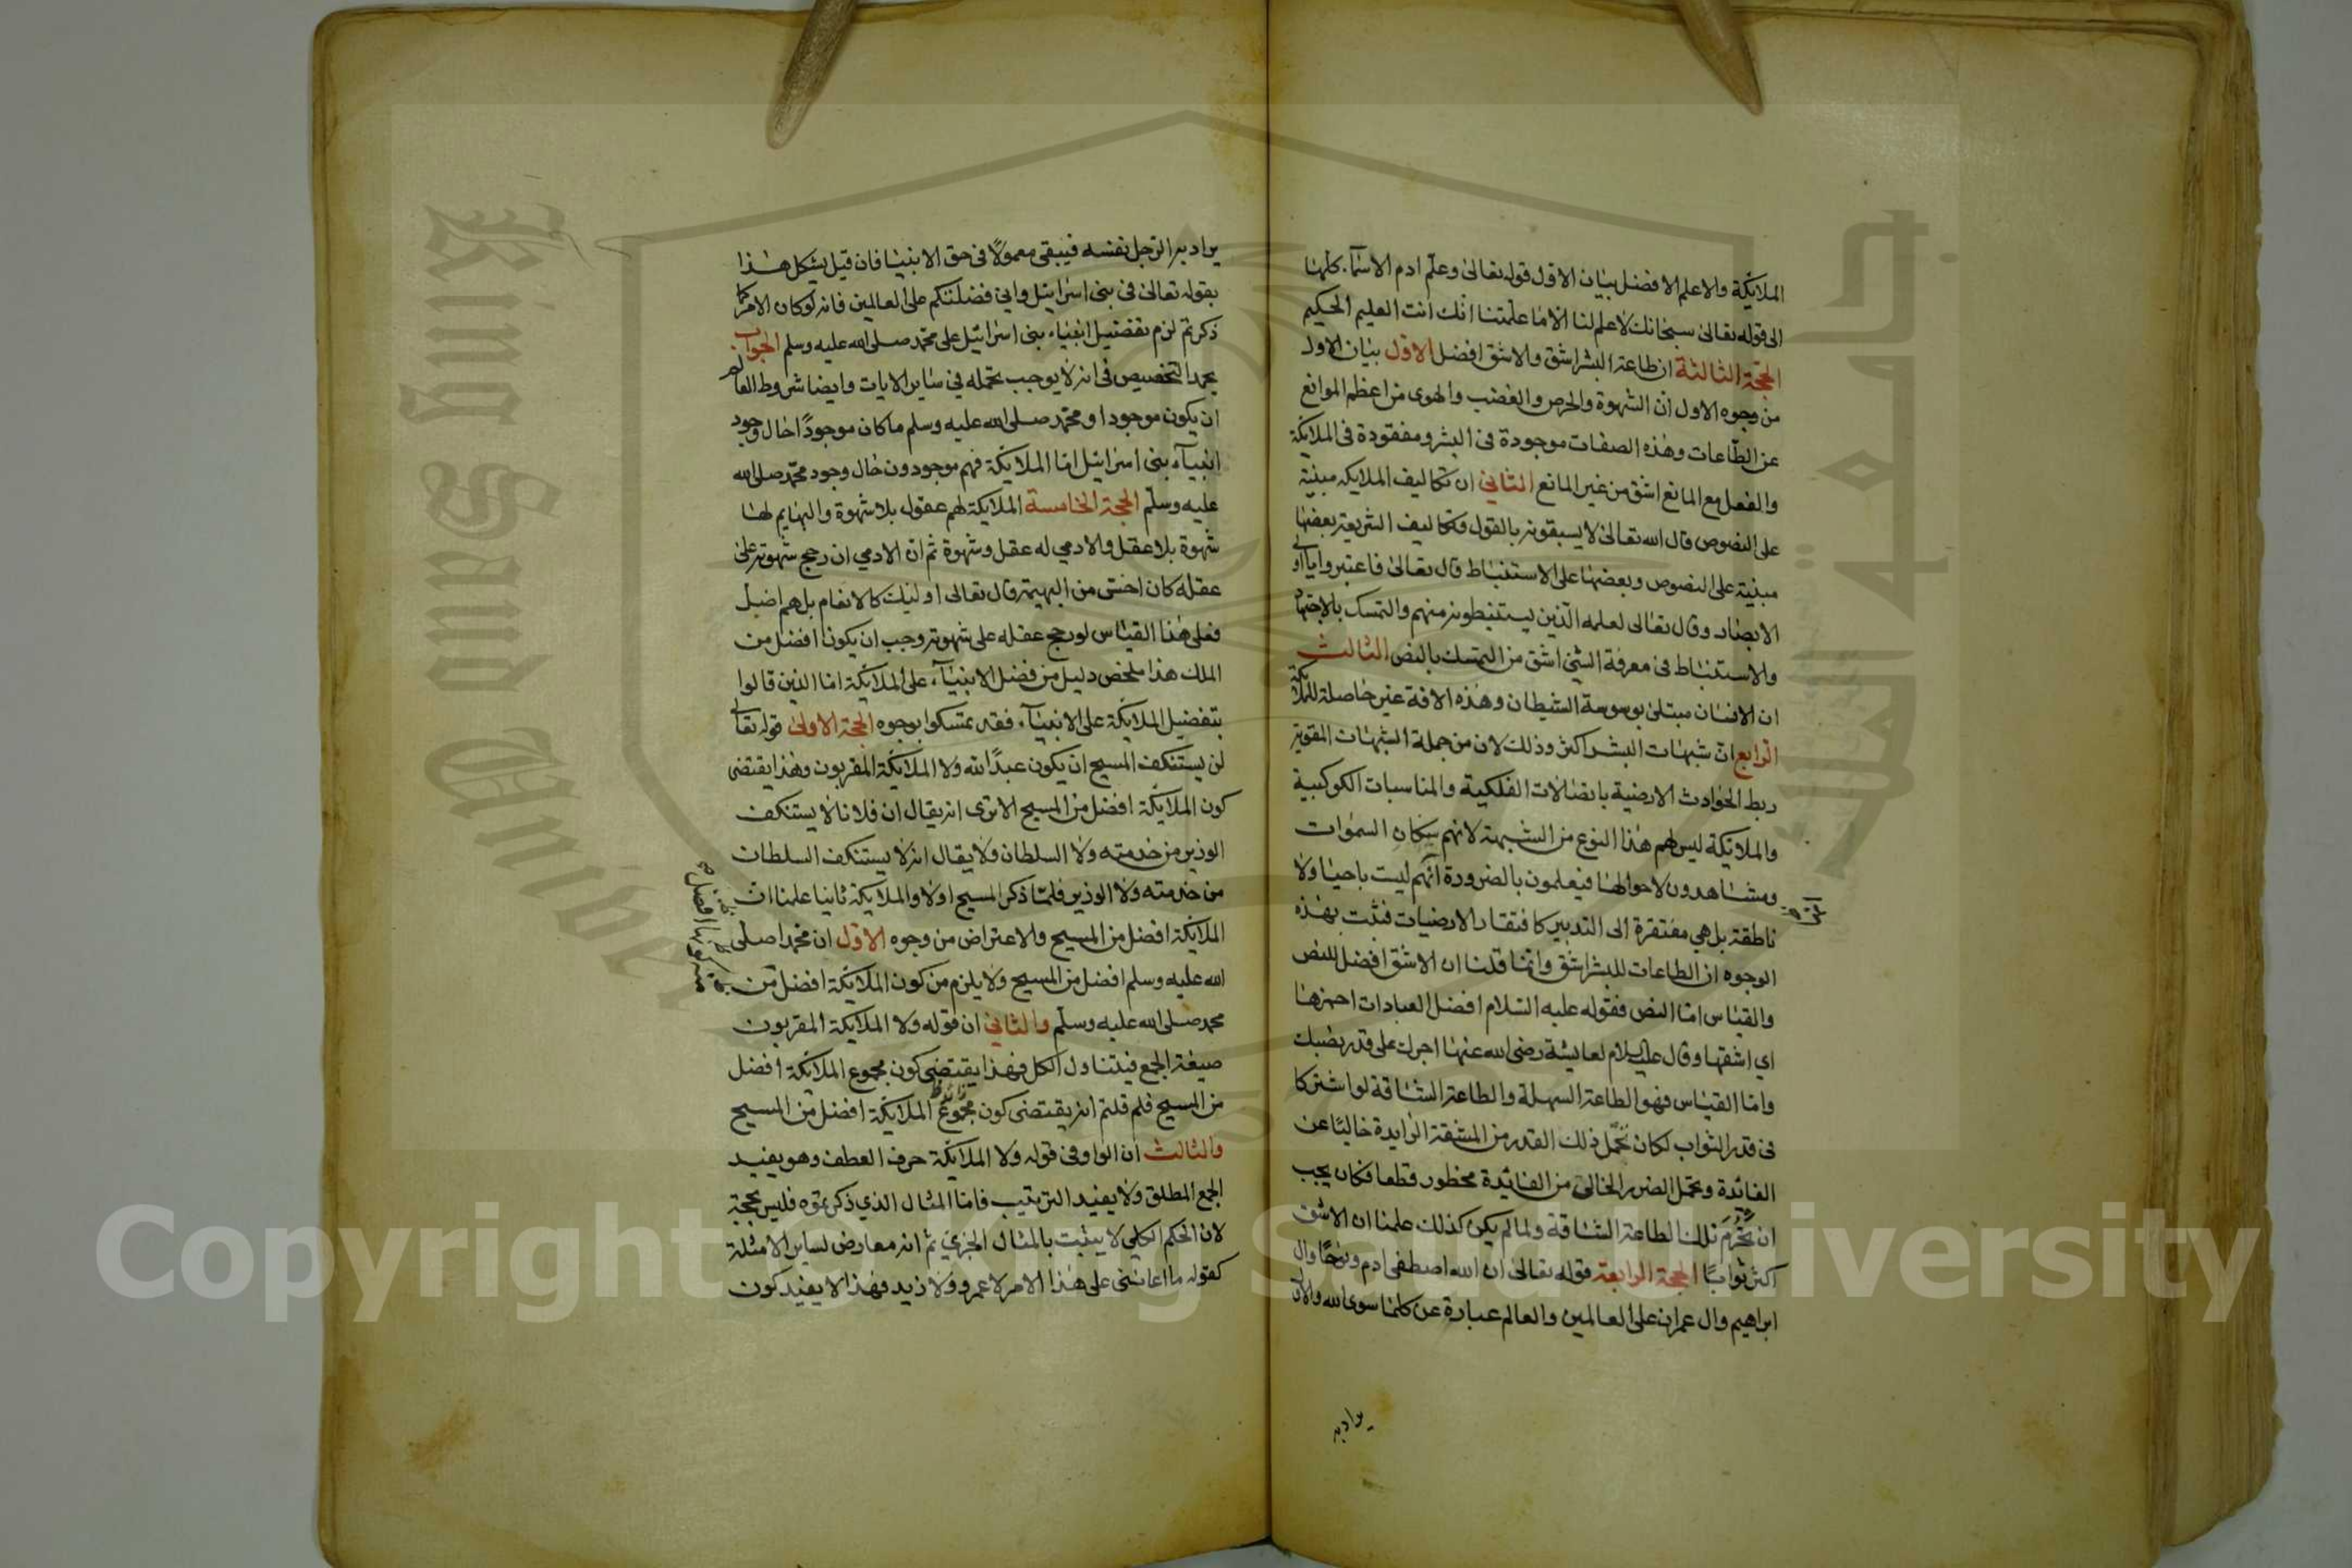 الملايكة والاعلم الافضل بيان الاول قوله تعالى وعلم ادم الاسماء كلها
الى قوله تعالى سبحانك لا علم لنا الا ما علمتنا انك انت العليم الحكيم
الحجة الثالثة ان طاعة البشر اشق والاشق افضل الاول بيان الاول
من وجوه الاول ان الشهوة والحرص والغضب والهوى من اعظم الموانع
عن الطاعات وهذه الصفات موجودة في البشر ومفقودة في الملايكة
والفعل مع المانع اشق من غير المانع الثاني ان تكاليف الملايكه مبنية
على النصوص قال الله تعالى لا يسبقونه بالقول وتكاليف الشريعة بعضها
مبنية على النصوص وبعضها على الاستنباط قال تعالى فاعتبروا يا اولي
الابصار وقال تعالى لعلمه الذين يستنبطونه منهم والتمسك بالاجتهاد
والاستنباط في معرفة الشي اشق من التمسك بالنص الثالث
ان الانسان مبتلى بوسوسة الشيطان وهذه الافة غير حاصلة للملايكة
الرابع ان شبهات البشر اكثر وذلك لان من جملة الشبهات القوية
ربط الحوادث الارضية باتصالات الفلكية والمناسبات الكوكبية
والملايكة ليس لهم هذا النوع من الشبهة لانهم سكان السموات
ومشاهدون لاحوالها فيعلمون بالضرورة انهم ليست باحيا ولا
ناطقة بل هي مفتقرة الى التدبير كافتقار الارضيات فثبت بهذه
الوجوه ان الطاعات للبشر اشق وانما قلنا ان الاشق افضل للنص
والقياس اما النص فقوله عليه السلام افضل العبادات احمزها
اي اشقها وقال عليه السلام لعايشة رضى الله عنها اجرك على قدر نصبك
واما القياس فهو الطاعة السهلة والطاعة الشاقة لو اشتركا
في قدر الثواب لكان تحمل ذلك القدر من المشقة الزايدة خاليا عن
الفائدة وتحمل الضرر الخالي من الفائدة محظور قطعا فكان يجب
ان تحرم تلك الطاعة الشاقة ولما لم يكن كذلك علمنا ان الاشق
اكثر ثوابا الحجة الرابعة قوله تعالى ان الله اصطفى ادم ونوحا وال
ابراهيم وال عمران على العالمين والعالم عبارة عن كلما سوى الله والال
يراد به
يراد به الرجل نفسه فيبقى معمولا في حق الانبيا فان قيل يشكل هذا
بقوله تعالى في بني اسرائيل واني فضلتكم على العالمين فانه لو كان الامر كما
ذكرتم لزم تفضيل انبياء بني اسرائيل على محمد صلى الله عليه وسلم الجواب
بحمد التخصيص في انه لا يوجب تحمله في ساير الايات وايضا شروط العالم
ان يكون موجودا ومحمد صلى الله عليه وسلم ما كان موجودا حال وجود
انبياء بني اسرائيل اما الملايكة فهم موجودون حال وجود محمد صلى الله
عليه وسلم الحجة الخامسة الملايكة لهم عقول بلا شهوة والبهايم لها
شهوة بلا عقل والادمي له عقل وشهوة ثم ان الادمي ان رجح شهوته على
عقله كان اخس من البهيمة قال تعالى اوليك كالانعام بل هم اضل
فعلى هذا القياس لو رجح عقله على شهوته وجب ان يكون افضل من
الملك هذا ملخص دليل من فضل الانبياء على الملايكة اما الذين قالوا
بتفضيل الملايكة على الانبياء فقد تمسكوا بوجوه الحجة الاولى قوله تعالى
لن يستنكف المسيح ان يكون عبدا لله ولا الملايكة المقربون وهذا يقتضى
كون الملايكة افضل من المسيح الا ترى انه يقال ان فلانا لا يستنكف
الوزير من خدمته ولا السلطان ولا يقال انه لا يستنكف السلطان
من خدمته ولا الوزير فلما ذكر المسيح اولا والملايكة ثانيا علمنا ان
الملايكة افضل من المسيح والاعتراض من وجوه الاول ان محمدا صلى
الله عليه وسلم افضل من المسيح ولا يلزم من كون الملايكة افضل من
محمد صلى الله عليه وسلم والثاني ان قوله ولا الملايكة المقربون
صيغة الجمع فيتناول الكل فهذا يقتضى كون مجموع الملايكة افضل
من المسيح فلم قلتم انه يقتضى كون مجموع الملايكة افضل من المسيح
والثالث ان الواو في قوله ولا الملايكة حرف العطف وهو يفيد
الجمع المطلق ولا يفيد الترتيب فاما المثال الذي ذكرتموه فليس بحجة
لان الحكم الكلي لا يثبت بالمثال الجزي ثم انه معارض لساير الامثلة
كقوله ما اعانني على هذا الامر لا عمرو ولا زيد فهذا لا يفيد كون
King Saud Univer
جامعة الملك
Copyright © King Saud University